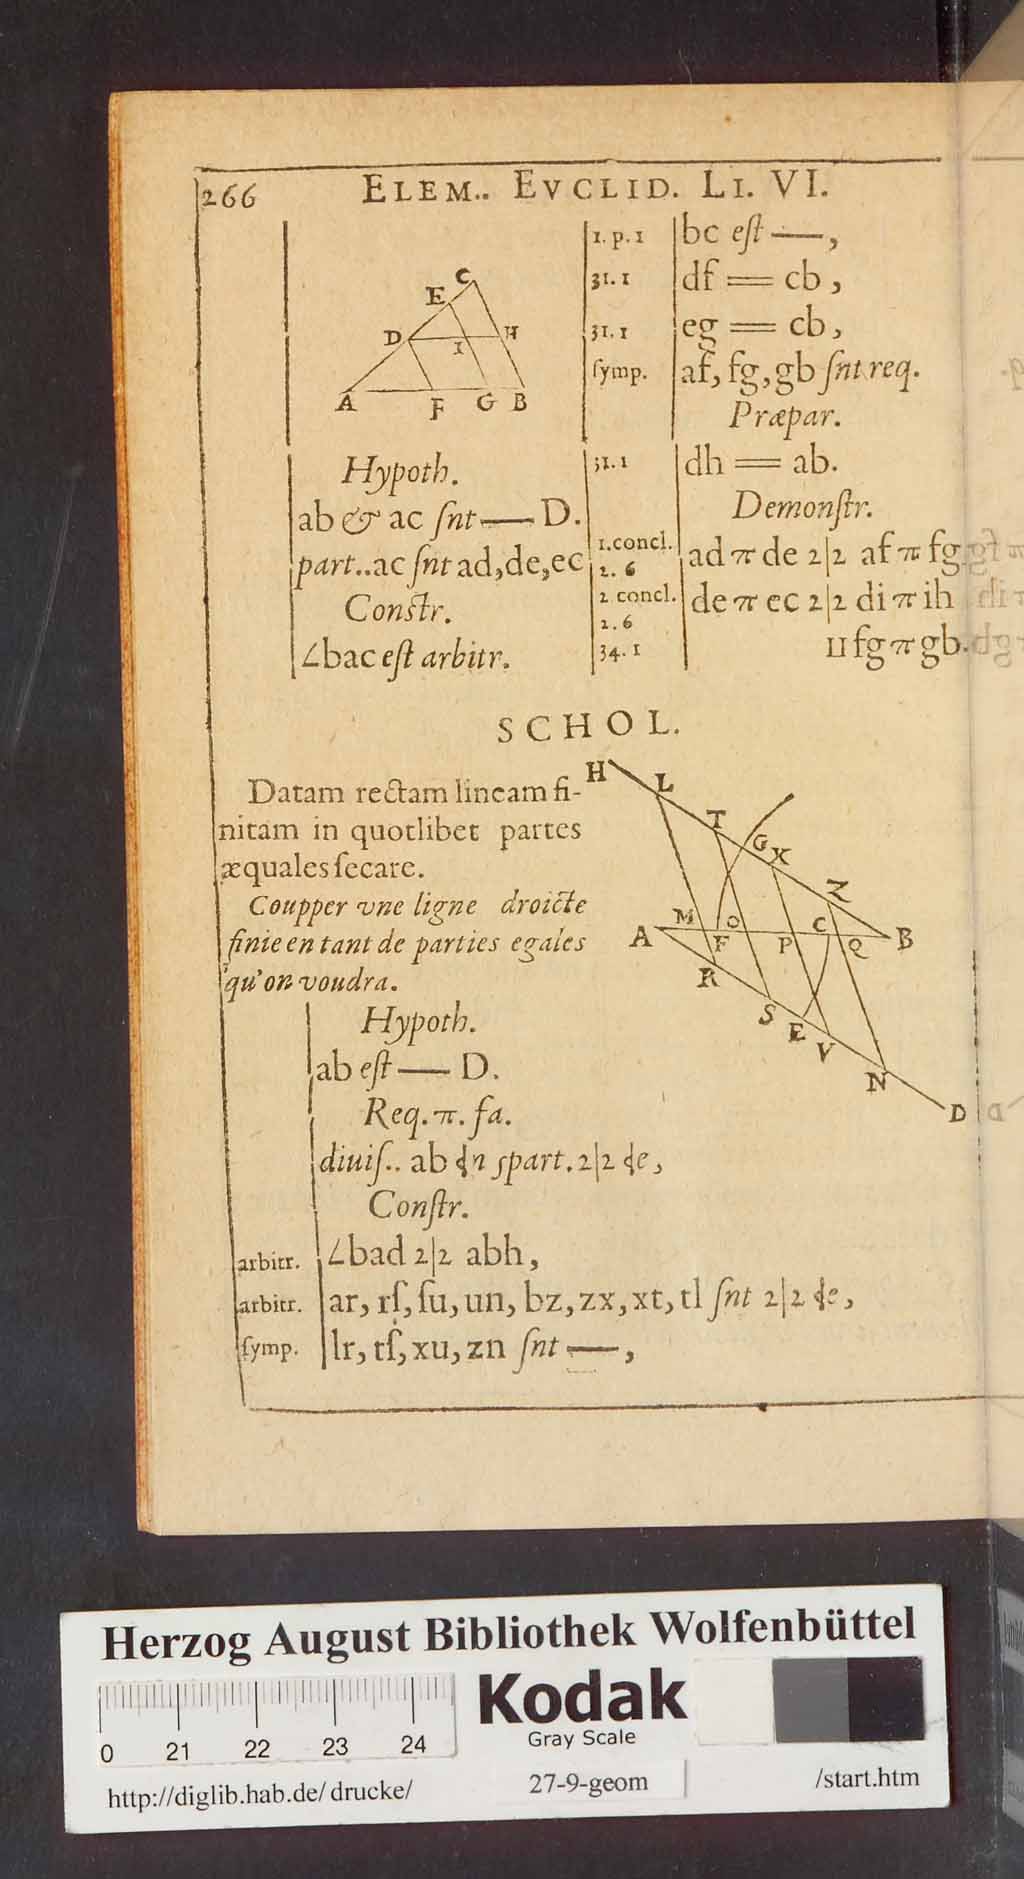 266 ELEM.. EVCLID. LI. VI.
C
E
D
I
H
A
F
G
B
Hypoth.
ab & ac ſnt — D.
part..ac ſnt ad,de,ec
Conſtr.
∠bac eſt arbitr.
1. p. 1 bc eſt —,
31. 1 df = cb ,
31. 1 eg = cb,
ſymp. af, fg, gb ſnt req.
Præpar.
31. 1 dh = ab.
Demonſtr.
1.concl. ad π de 2|2 af π fg
2. 6
2 concl. de π ec 2|2 di π ih
2. 6
34. 1 II fg π gb.
SCHOL.
Datam rectam lineam fi-
nitam in quotlibet partes
æquales ſecare.
Coupper vne ligne droicte
finie en tant de parties egales
qu'on voudra.
H
L
T
G
X
Z
A
M
F
O
P
C
Q
B
R
S
E
V
N
D
Hypoth.
ab eſt — D.
Req. π. fa.
diuiſ.. ab part. 2|2
Conſtr.
arbitr. ∠bad 2|2 abh,
arbitr. ar, rſ, ſu, un, bz, zx, xt, tl ſnt 2|2
ſymp. lr, tſ, xu, zn ſnt —,
Herzog August Bibliothek Wolfenbüttel
Kodak
Gray Scale
0 21 22 23 24
http://diglib.hab.de/drucke/ 27-9-geom /start.htm